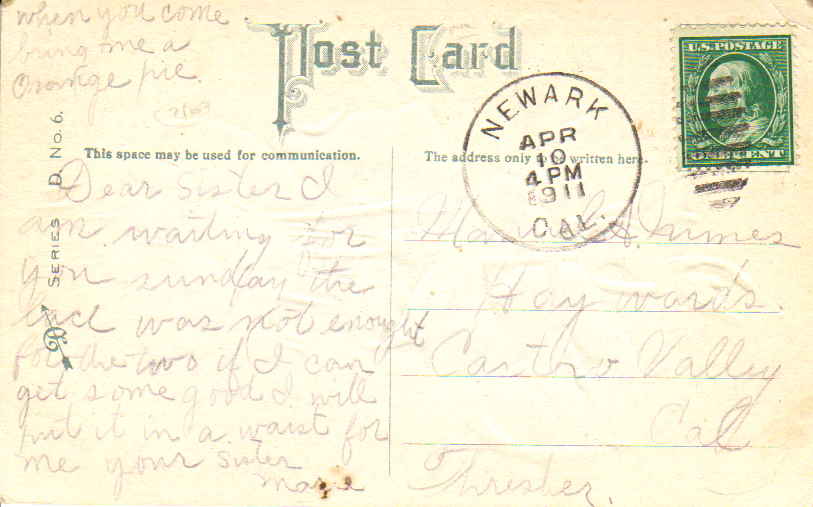 when you come
bring me a
Orange pie.
Post Card
This space may be used for communication.
The address only to be written here.
U.S. POSTAGE
ONE CENT
NEWARK
APR
10
4 PM
1911
CAL.
SERIES D. No. 6.
Dear Sister I
am waiting for
you sunday the
lace was not enought
for the two if I can
get some good I will
put it in a waist for
me your Sister
Marie
Hay wards.
Castro Valley
Cal
Thresher.